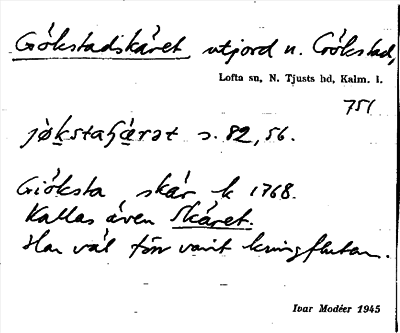 Gökstadskäret, utjord u. Gökstad,
Lofta sn, N. Tjusts hd, Kalm. l.
751
s. 82, 56.
Giöksta skär k 1768.
Kallas även Skäret.
Har väl förr varit kringfluten.
Ivar Modéer 1945